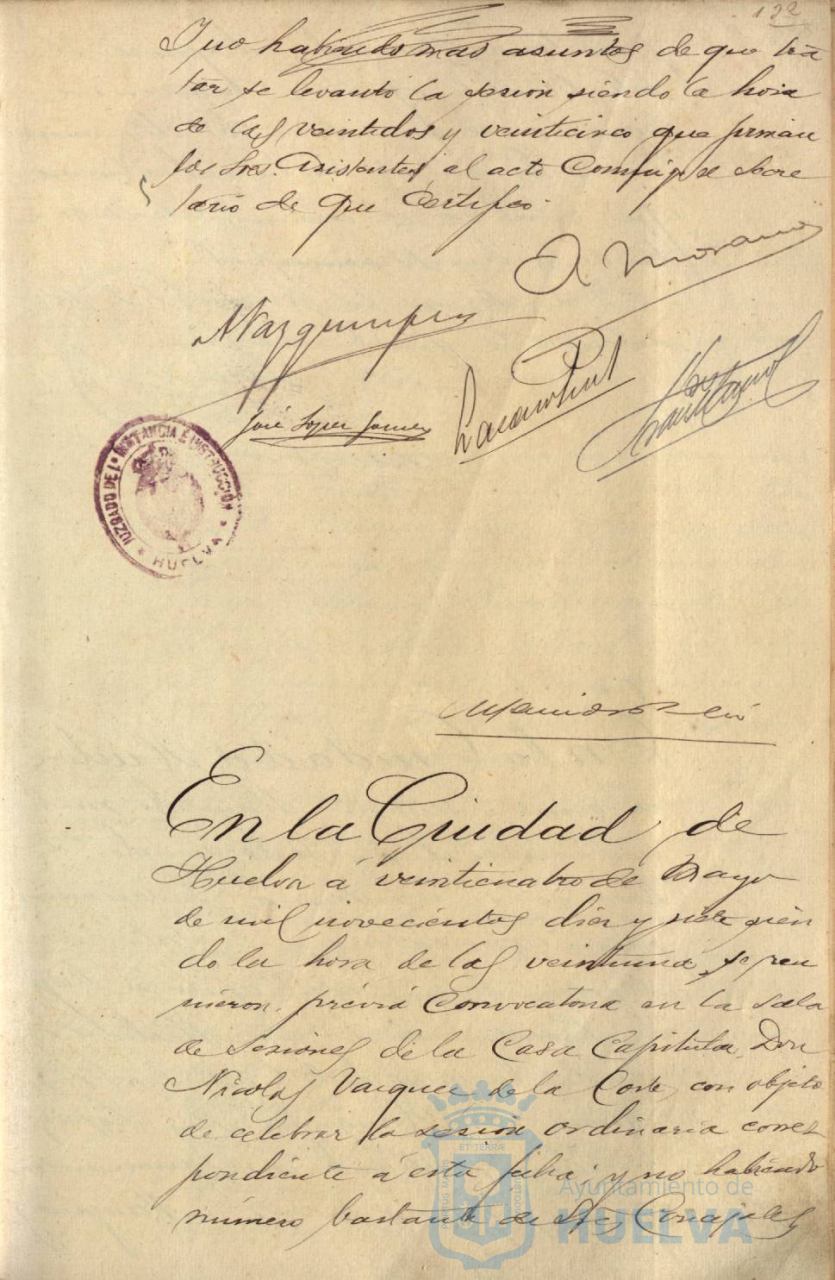 132
Y no habiendo mas asuntos de que tra
tar se levantó la sesión siendo la hora
de las veintidos y veinticinco que firman
los Sres. Asistentes al acto conmigo el Secre
tario de que certifico.
A. Morano
José López Gómez
JUZGADO DE 1ª INSTANCIA E INSTRUCCIÓN
* HUELVA *
En la Ciudad de
Huelva á veinticuatro de Mayo
de mil novecientos diez y siete sien
do la hora de las veintiuna, se reu
nieron, prévia convocatoria en la sala
de sesiones de la Casa Capitular, Don
Nicolás Vazquez de la Corte, con objeto
de celebrar la sesion ordinaria corres
pondiente á esta fecha; y no habiendo
número bastante de Sres. Concejales
Ayuntamiento de
HUELVA